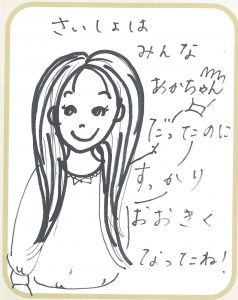 さいしょは
みんな
あかちゃん
だってたのに
すっかり
おおきく
なってたね!